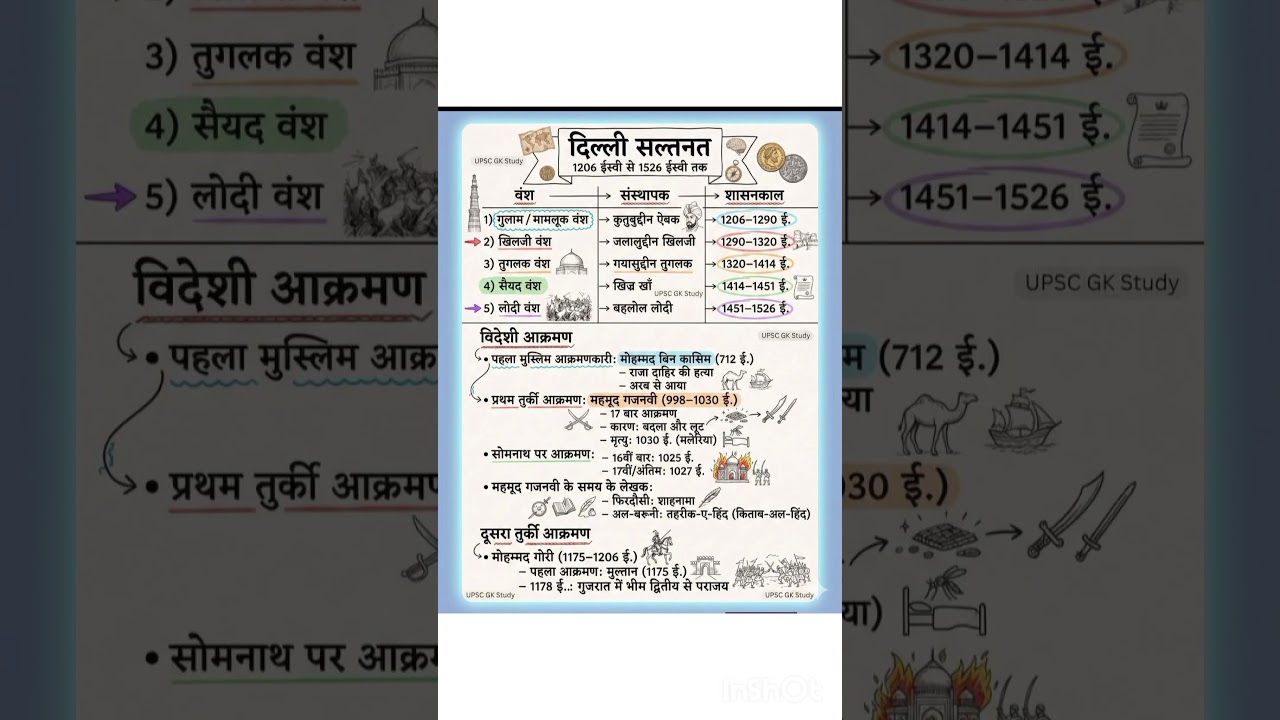 दिल्ली सल्तनत
1206 ईस्वी से 1526 ईस्वी तक
UPSC GK Study
वंश → संस्थापक → शासनकाल
1) गुलाम / मामलूक वंश → कुतुबुद्दीन ऐबक → 1206–1290 ई.
2) खिलजी वंश → जलालुद्दीन खिलजी → 1290–1320 ई.
3) तुगलक वंश → गयासुद्दीन तुगलक → 1320–1414 ई.
4) सैयद वंश → खिज्र खाँ → 1414–1451 ई.
UPSC GK Study
5) लोदी वंश → बहलोल लोदी → 1451–1526 ई.
विदेशी आक्रमण
UPSC GK Study
• पहला मुस्लिम आक्रमणकारी: मोहम्मद बिन कासिम (712 ई.)
– राजा दाहिर की हत्या
– अरब से आया
• प्रथम तुर्की आक्रमण: महमूद गजनवी (998–1030 ई.)
– 17 बार आक्रमण
– कारण: बदला और लूट
– मृत्यु: 1030 ई. (मलेरिया)
• सोमनाथ पर आक्रमण: – 16वीं बार: 1025 ई.
– 17वीं/अंतिम: 1027 ई.
• महमूद गजनवी के समय के लेखक:
– फिरदौसी: शाहनामा
– अल-बरूनी: तहरीक-ए-हिंद (किताब-अल-हिंद)
दूसरा तुर्की आक्रमण
• मोहम्मद गोरी (1175–1206 ई.)
– पहला आक्रमण: मुल्तान (1175 ई.)
– 1178 ई..: गुजरात में भीम द्वितीय से पराजय
UPSC GK Study
UPSC GK Study
InShOt
3) तुगलक वंश
4) सैयद वंश
5) लोदी वंश
विदेशी आक्रमण
• पहला मुस्लिम आक्र
• प्रथम तुर्की आक्रमण
• सोमनाथ पर आक्रम
→ 1320–1414 ई.
→ 1414–1451 ई.
→ 1451–1526 ई.
UPSC GK Study
म (712 ई.)
या
030 ई.)
या)